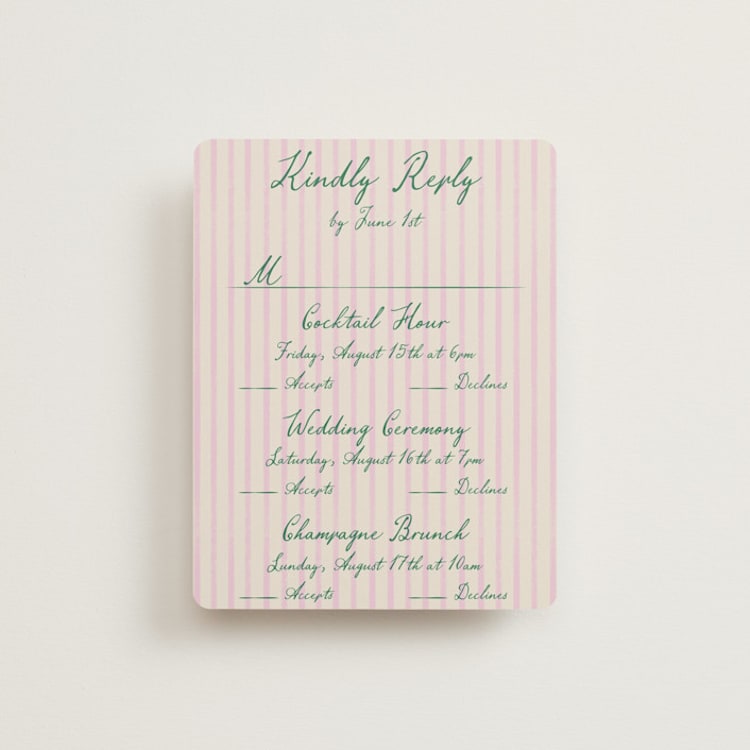 Kindly Reply
by June 1st
M
Cocktail Hour
Friday, August 15th at 6pm
Accepts Declines
Wedding Ceremony
Saturday, August 16th at 7pm
Accepts Declines
Champagne Brunch
Sunday, August 17th at 10am
Accepts Declines